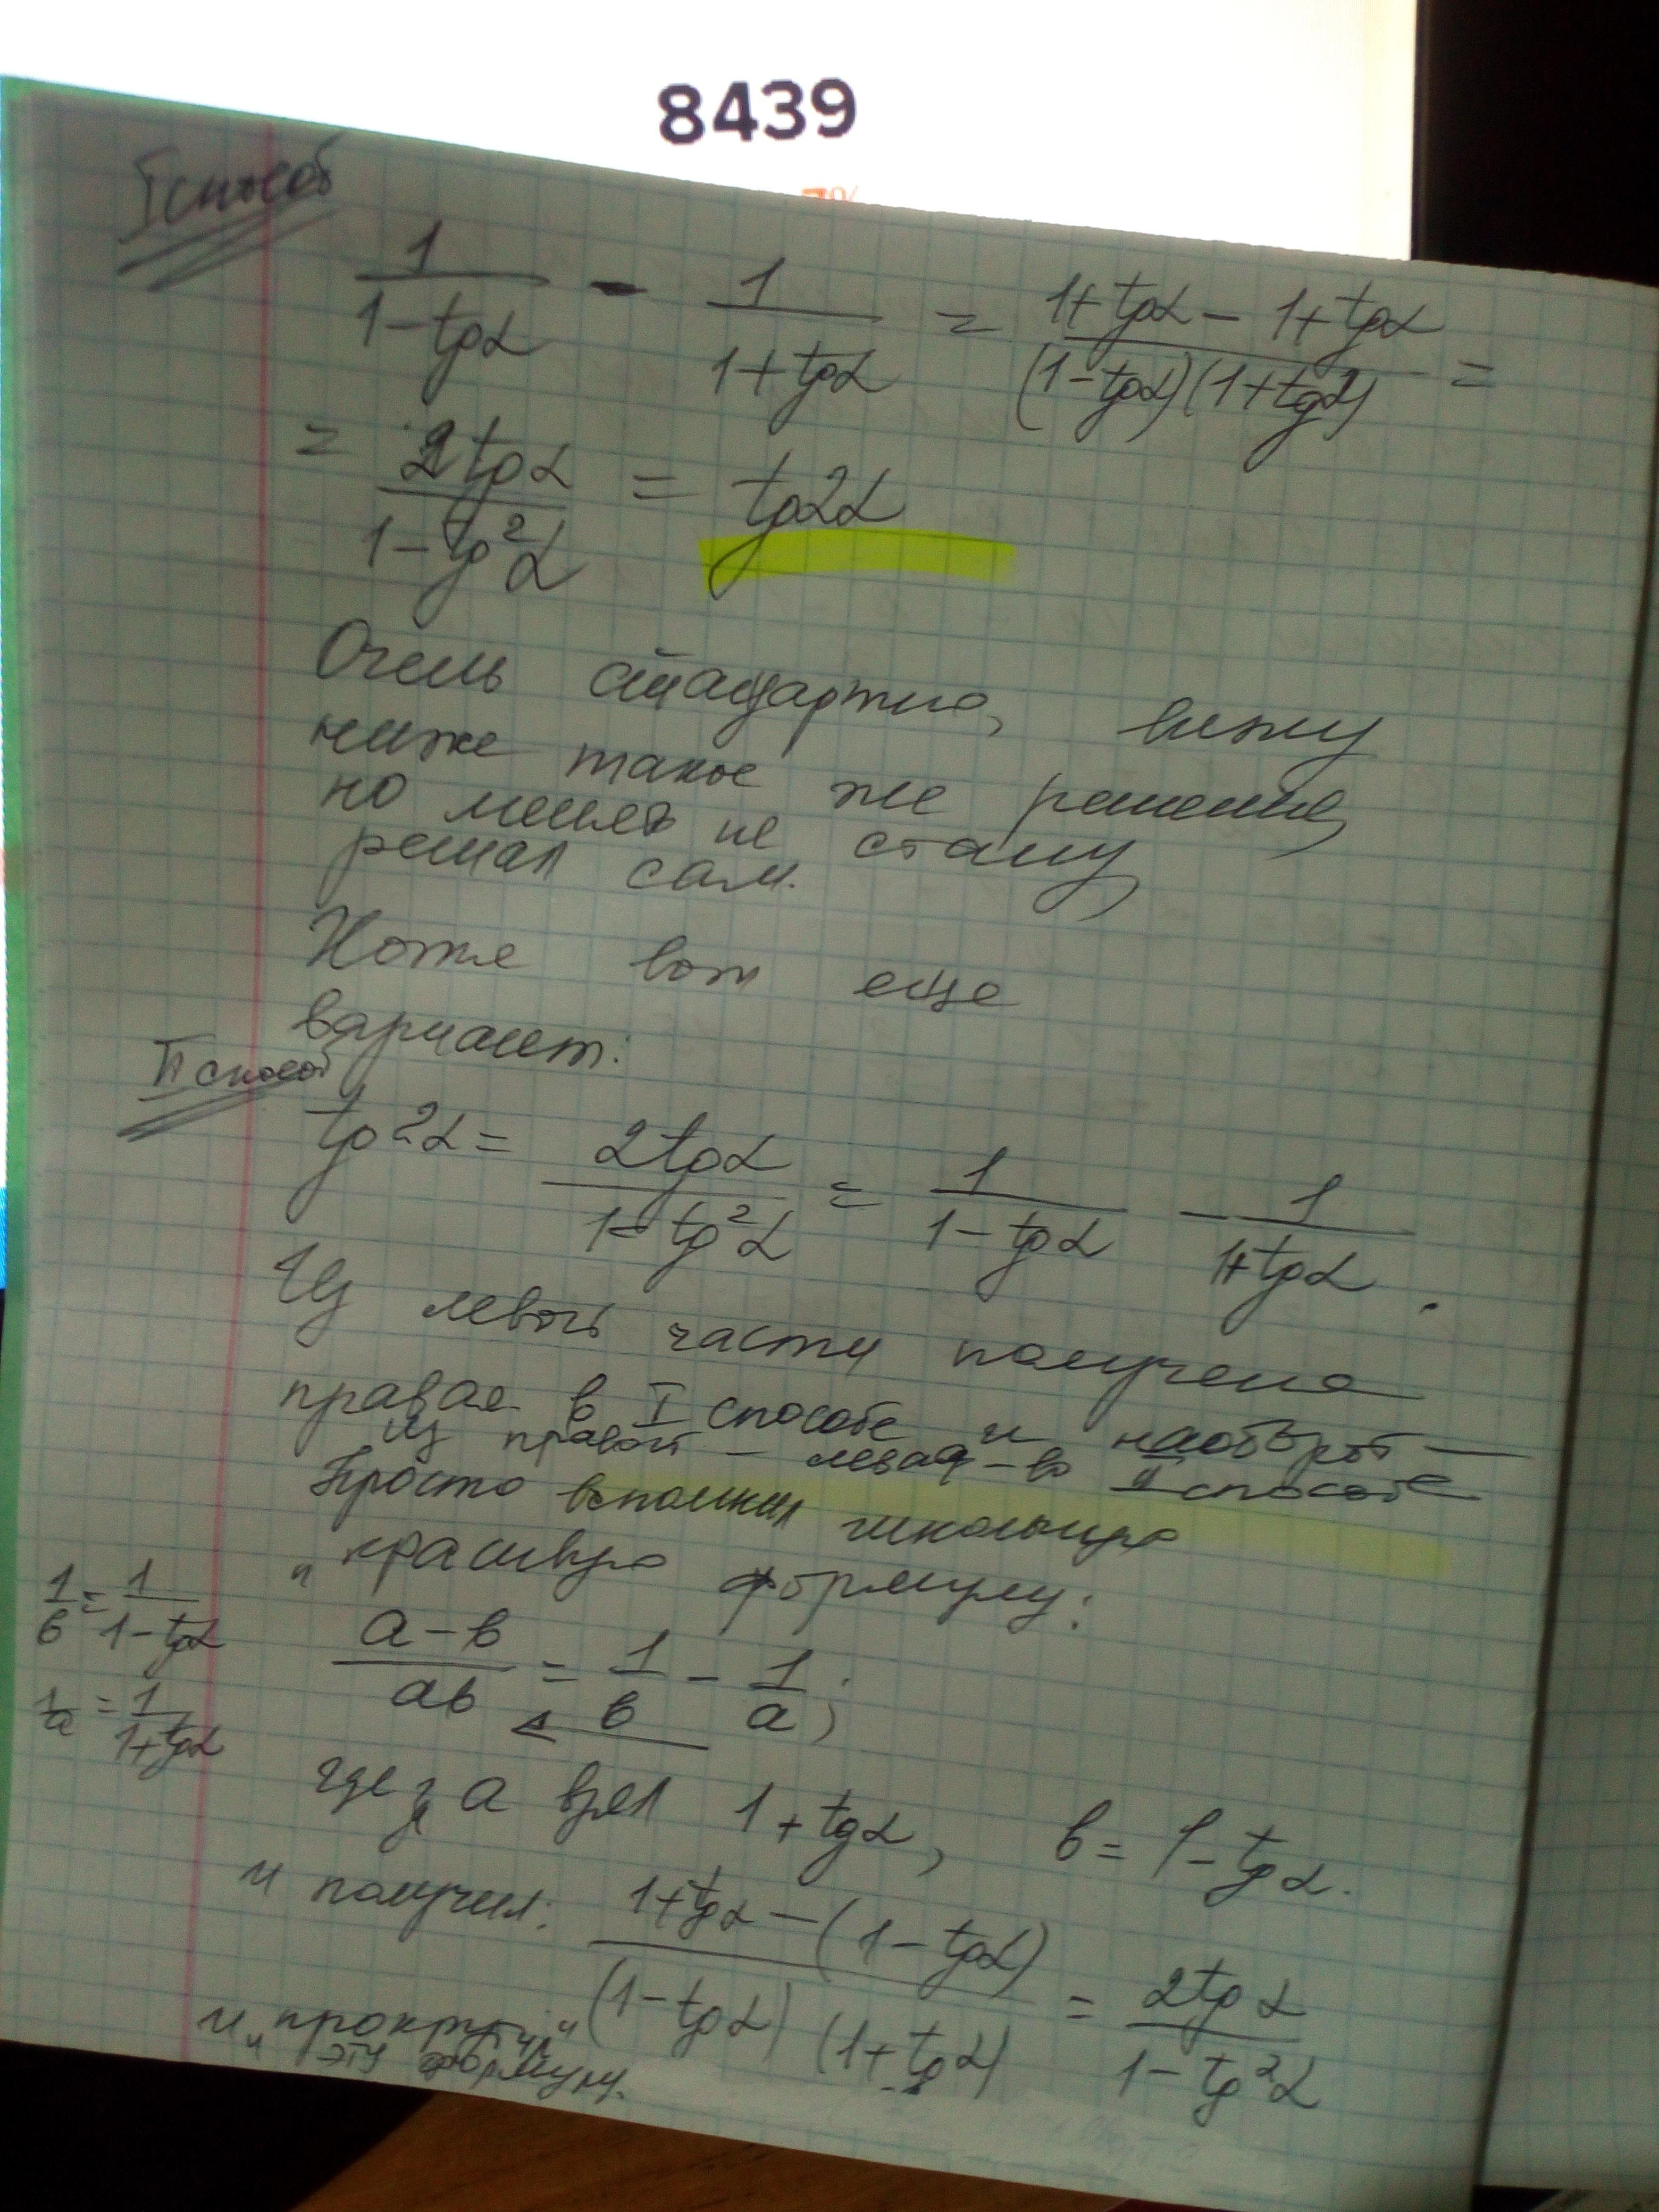 8439
I способ
1/(1-tgα) - 1/(1+tgα) = (1+tgα - 1+tgα)/((1-tgα)(1+tgα)) =
= 2tgα/(1-tg²α) = tg2α
Очень стандартно, вижу
ниже такое же решение,
но менять не стану,
решал сам.
Ниже вот еще
вариант:
II способ
tg2α = 2tgα/(1-tg²α) = 1/(1-tgα) - 1/(1+tgα).
Из левой части получена
правая в I способе и наоборот —
из правой - левая - во II способе
Просто вспомнил школьную
и красивую формулу:
1/в = 1/(1-tgα)
(a-в)/(aв) = 1/в - 1/a;
1/a = 1/(1+tgα)
где за a взял 1+tgα, в = 1-tgα.
и получил: (1+tgα-(1-tgα))/((1-tgα)(1+tgα)) = 2tgα/(1-tg²α)
и "прокрутил"
эту формулу.